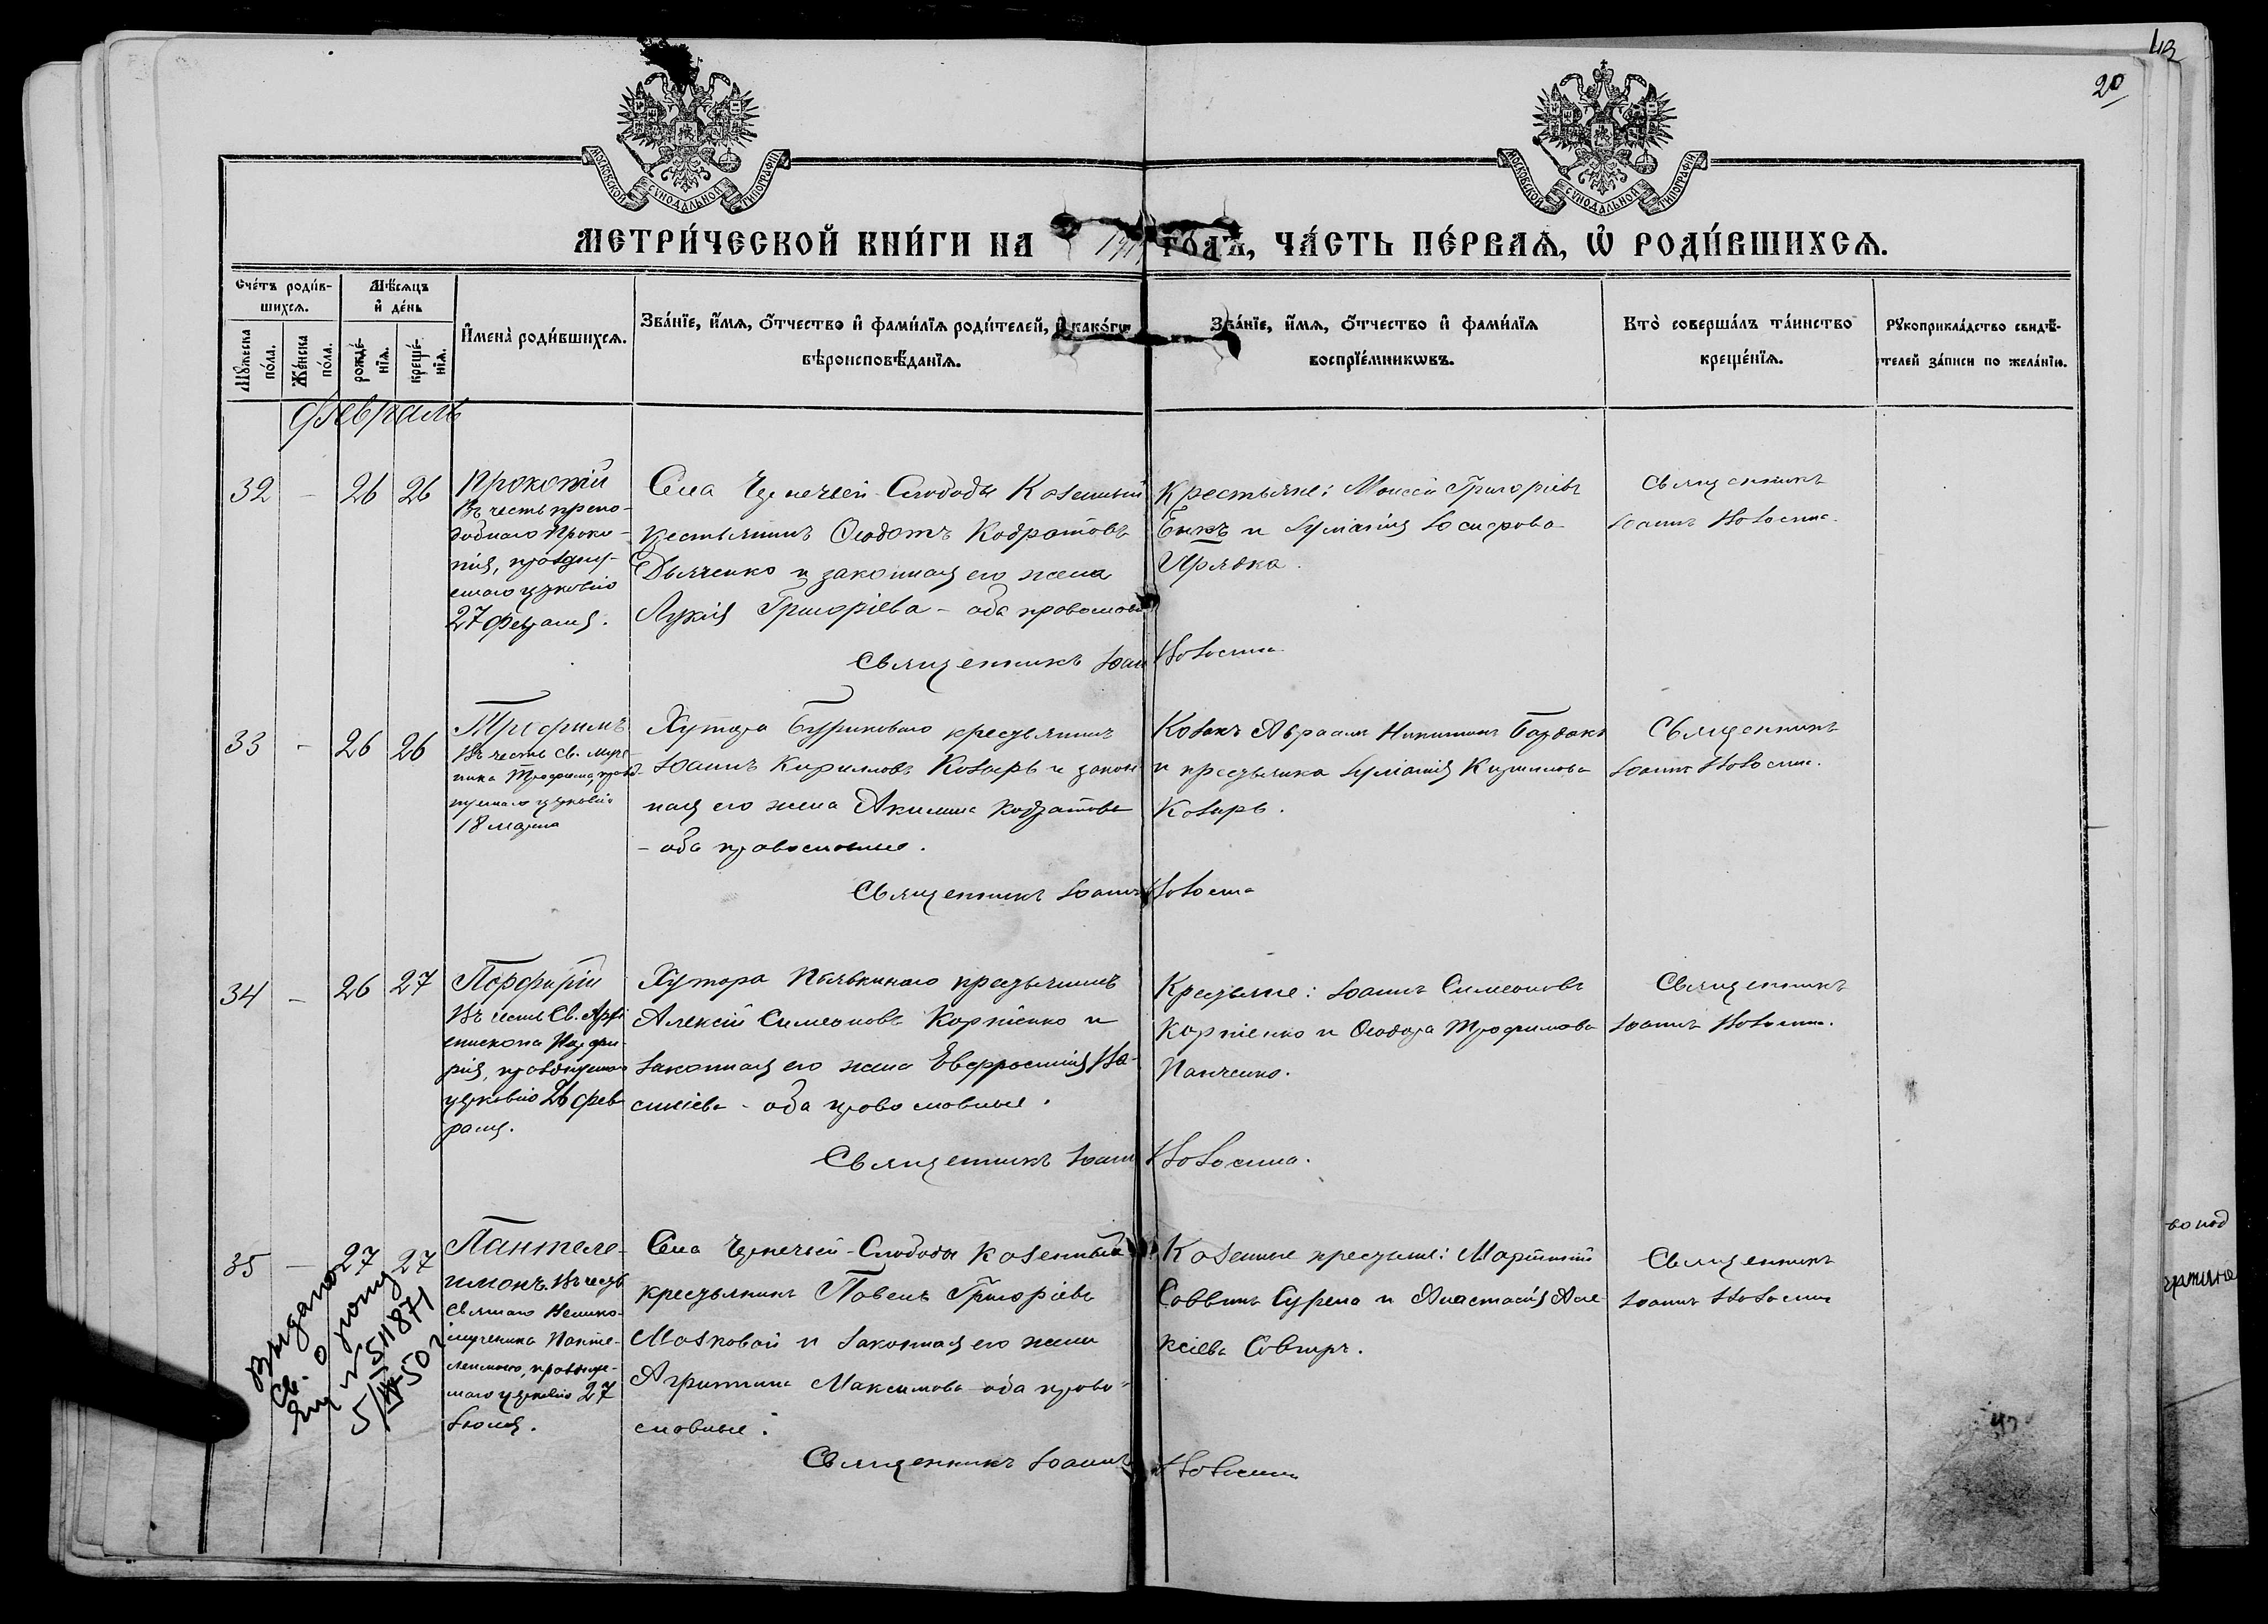 43
20
МОСКОВСКОЙ СѴНОДАЛЬНОЙ ТИПОГРАФІИ
МОСКОВСКОЙ СѴНОДАЛЬНОЙ ТИПОГРАФІИ
МЕТРИ́ЧЕСКОЙ КНИ́ГИ НА ГО́ДЪ, ЧА́СТЬ ПЕ́РВАѦ, Ѡ҆ РОДИ́ВШИХСѦ.
Сче́тъ роди́в-
шихсѧ.
Мꙋ́жеска по́ла.
Же́нска по́ла.
Мѣ́сѧцъ
и҆ де́нь
рожде́-
нїѧ.
креще́-
нїѧ.
И҆мена̀ роди́вшихсѧ.
Зва́нїе, и҆́мѧ, ѻ҆́тчество и҆ фами́лїѧ роди́телей, и҆ како́гѡ
вѣроисповѣ́данїѧ.
Зва́нїе, и҆́мѧ, ѻ҆́тчество и҆ фами́лїѧ
воспрїе́мникѡвъ.
Кто̀ соверша́лъ та́инство
креще́нїѧ.
Рꙋкоприкла́дство свидѣ́-
телей за́писи по жела́нїю.
Февраль
32 - 26 26
Прокопій
Въ честь препо-
добнаго Проко-
пія, праздну-
емаго церковію
27 Февраля.
Села Чернечьей-Слободы Козенный
крестьянинъ Ѳеодотъ Кодратовъ
Дьяченко и законная его жена
Лукія Григоріева - оба православ
Священникъ Іоан
Крестьяне: Моисей Григоріевъ
Енкъ и Іуліанія Іосифова
Прядка.
Священникъ
Іоаннъ
33 - 26 26
Трофимъ
Въ честь Св. муче-
ника Трофима, празд-
нуемаго церковію
18 марта
Хутора Буриковаго крестьянинъ
Іоаннъ Кириловъ Козырь и закон
ная его жена Акилина Кодратова
- оба православные.
Священникъ Іоаннъ
Козакъ Авраамъ Никитинъ Бардакъ
и крестьянка Іуліанія Кирилова
Козырь.
Священникъ
Іоаннъ
34 - 26 27
Порфирій
Въ честь Св. Архі
епископа Порфи-
рія, празднуемаго
церковію 26 фев
раля.
Хутора крестьянинъ
Алексій Симеоновъ Корніенко и
законная его жена Евфросинія Ва-
силіева - оба православные.
Священникъ Іоанн
Крестьяне: Іоаннъ Симеоновъ
Корніенко и Ѳеодора Трофимова
Панченко.
Священникъ
Іоаннъ
35 - 27 27
Пантеле-
имонъ. Въ честь
Святаго Велико-
мученика Панте-
леимона, праздну-
емаго церковію 27
Іюля.
Села Чернечьей-Слободы Козенный
крестьянинъ Павелъ Григоріевъ
Мозковой и законная его жена
Агриппина Максимова оба право-
славные.
Священникъ Іоаннъ
Козенные крестьяне: Мартиній
Саввинъ Сурема и Анастасія Але-
ксіева
Священникъ
Іоаннъ
Выдано
Св. о рожд
№ 511871
5/IV-50 г